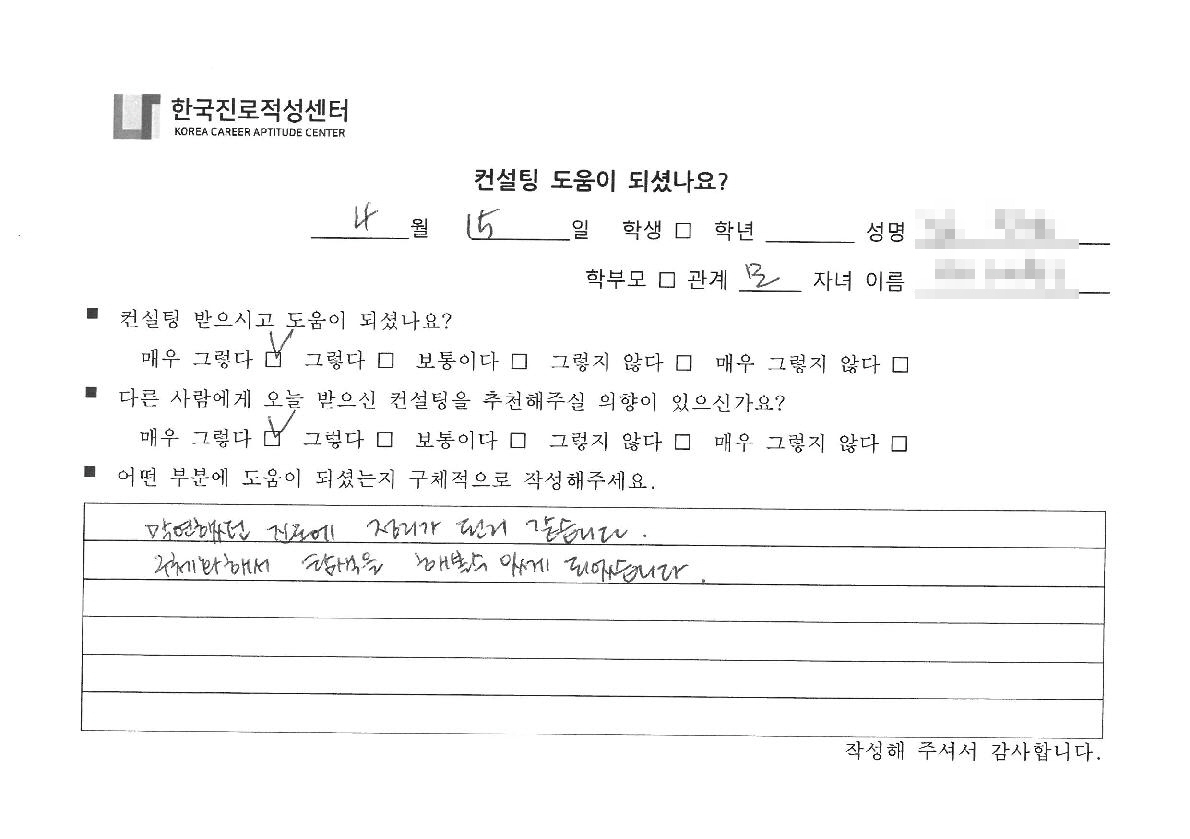 한국진로적성센터
KOREA CAREER APTITUDE CENTER
컨설팅 도움이 되셨나요?
4 월 15 일 학생 □ 학년 성명
학부모 □ 관계 모 자녀 이름
■ 컨설팅 받으시고 도움이 되셨나요?
매우 그렇다 ☑ 그렇다 □ 보통이다 □ 그렇지 않다 □ 매우 그렇지 않다 □
■ 다른 사람에게 오늘 받으신 컨설팅을 추천해주실 의향이 있으신가요?
매우 그렇다 ☑ 그렇다 □ 보통이다 □ 그렇지 않다 □ 매우 그렇지 않다 □
■ 어떤 부분에 도움이 되셨는지 구체적으로 작성해주세요.
막연했던 진로에 정리가 된거 같습니다.
구체화해서 탐색을 해볼수 있게 되었습니다.
작성해 주셔서 감사합니다.